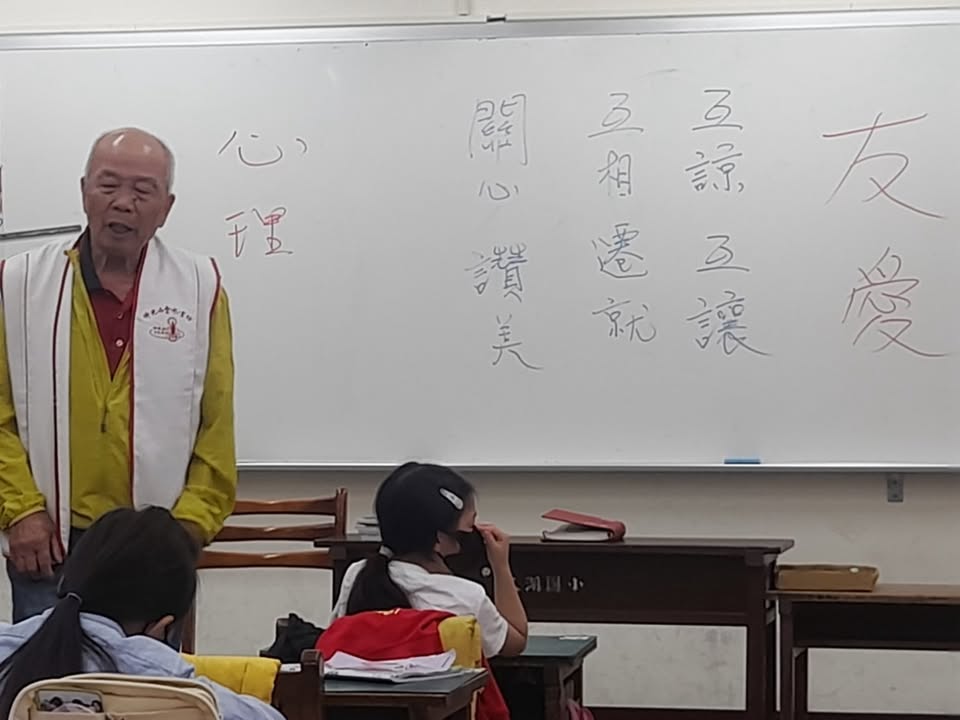 友愛
互諒互讓
互相遷就
關心讚美
心理